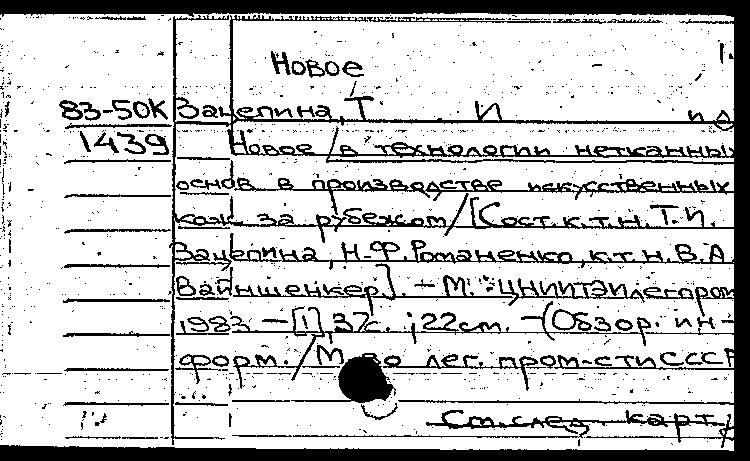 Новое
83-50К Зацепина, Т И и
1439 Новое /в технологии нетканных
основ в производстве искусственных
кож за рубежом/[Сост. к.т.н. Т.И.
Зацепина, Н.Ф.Романенко, к.т.н. В.А.
Вайншенкер]. — М.: ЦНИИТЭИлегпром
1983. —[1], 37с. ; 22см. —(Обзор. ин-
форм. / М во лег. пром-сти СССР
См. след. карт.